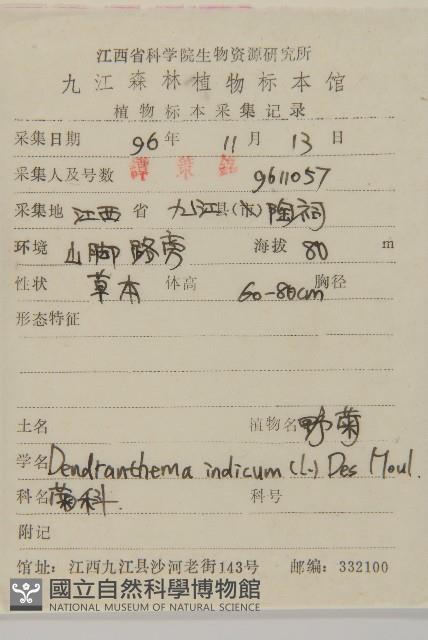 江西省科学院生物资源研究所
九江森林植物标本馆
植物标本采集记录
采集日期 96年 11月 13日
采集人及号数 譚策銘 9611057
采集地 江西省 九江县(市) 陶祠
环境 山脚路旁 海拔 80 m
性状 草本 体高 60-80cm 胸径
形态特征
土名 植物名 野菊
学名 Dendranthema indicum (L.) Des Moul.
科名 菊科. 科号
附记
馆址: 江西九江县沙河老街143号 邮编: 332100
國立自然科學博物館
NATIONAL MUSEUM OF NATURAL SCIENCE